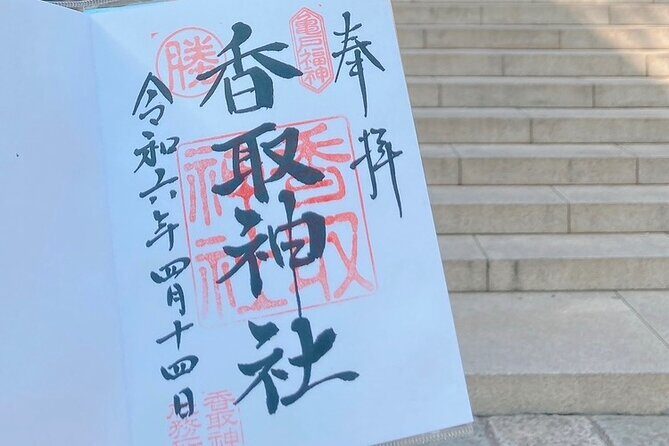 奉拝
亀戸福神
香取神社
勝
香取
神社
令和六年四月十四日
香取神